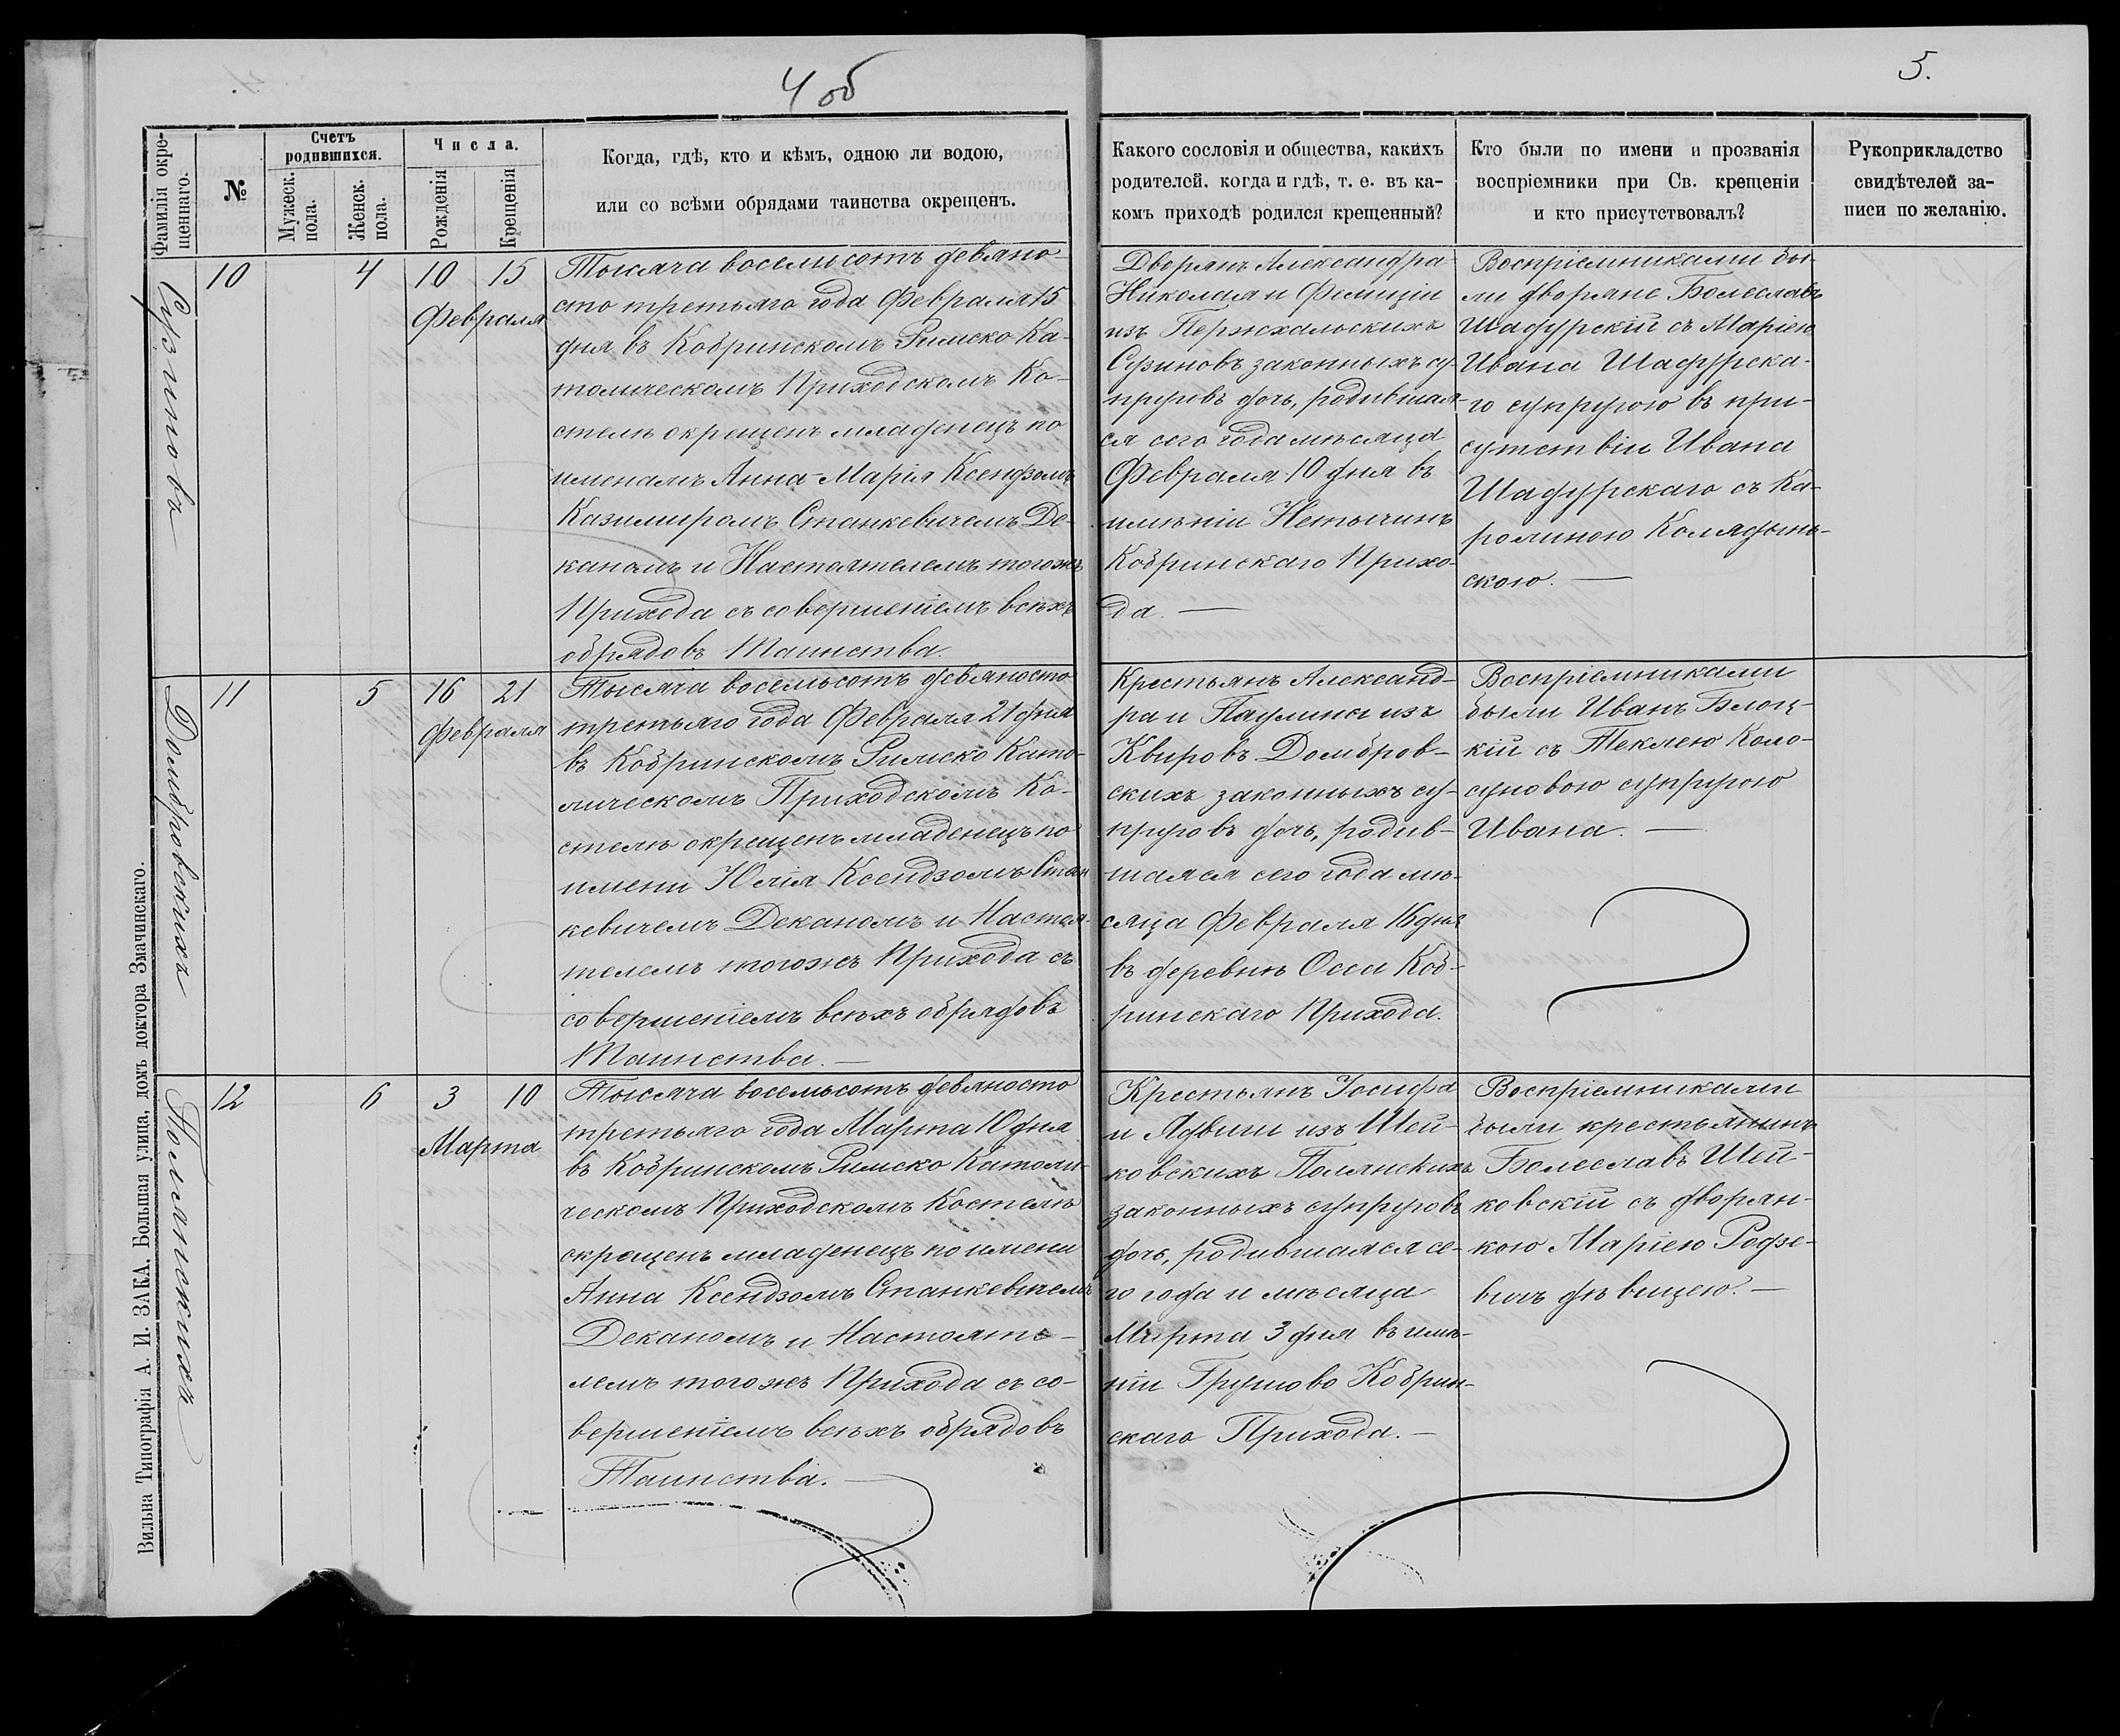 4 об
5.
Фамилія окре-
щеннаго.
№
Счетъ
родившихся.
Мужеск.
пола.
Женск.
пола.
Числа.
Рожденія
Крещенія
Когда, гдѣ, кто и кѣмъ, одною ли водою,
или со всѣми обрядами таинства окрещенъ.
Какого сословія и общества, какихъ
родителей. когда и гдѣ, т. е. въ ка-
комъ приходѣ родился крещенный?
Кто были по имени и прозванія
воспріемники при Св. крещеніи
и кто присутствовалъ?
Рукоприкладство
свидѣтелей за-
писи по желанію.
Сузиновъ
10
4
10 15
Февраля
Тысяча восемьсотъ девяно-
сто третьяго года Февраля 15
дня въ Кобринскомъ Римско Ка-
толическомъ Приходскомъ Ко-
стелѣ окрещенъ младенецъ по
именамъ Анна-Марія Ксендзомъ
Казимиромъ Станкевичемъ Де-
каномъ и Настоятелемъ тогожъ
Прихода съ совершеніемъ всѣхъ
обрядовъ Таинства.
Дворянъ Александра
Николая и Фелиціи
изъ Пержхальскихъ
Сузиновъ законныхъ су-
пруговъ дочь, родившая-
ся сего года мѣсяца
Февраля 10 дня въ
имѣніи Нетычинъ
Кобринскаго Прихо-
да. —
Воспріемниками бы-
ли дворяне Болеславъ
Шадурскій съ Маріею
Ивана Шадурска-
го супругою въ при-
сутствіи Ивана
Шадурскаго съ Ка-
ролиною Колядынь-
скою. —
Домбровскихъ
11
5
16 21
Февраля
Тысяча восемьсотъ девяносто
третьяго года Февраля 21 дня
въ Кобринскомъ Римско Като-
лическомъ Приходскомъ Ко-
стелѣ окрещенъ младенецъ по
имени Юлія Ксендзомъ Стан
кевичемъ Деканомъ и Настоя-
телемъ тогожъ Прихода съ
совершеніемъ всѣхъ обрядовъ
Таинства. —
Крестьянъ Александ-
ра и Паулины изъ
Квировъ Домбров-
скихъ законныхъ су-
пруговъ дочь, родив-
шаяся сего года мѣ-
сяца Февраля 16 дня
въ деревнѣ Осса Коб-
ринскаго Прихода.
Воспріемниками
были Иванъ Блоц-
кій съ Теклею Коло-
суновою супругою
Ивана. —
Полянскихъ
12
6
3 10
Марта
Тысяча восемьсотъ девяносто
третьяго года Марта 10 дня
въ Кобринскомъ Римско Католи-
ческомъ Приходскомъ Костелѣ
окрещенъ младенецъ по имени
Анна Ксендзомъ Станкевичемъ
Деканомъ и Настояте-
лемъ тогожъ Прихода съ со-
вершеніемъ всѣхъ обрядовъ
Таинства. —
Крестьянъ Іосифа
и Ядвиги изъ Шей-
ковскихъ Полянскихъ
законныхъ супруговъ
дочь, родившаяся се-
го года и мѣсяца
Марта 3 дня въ имѣ-
ніи Грушово Кобрин-
скаго Прихода. —
Воспріемниками
были крестьянинъ
Болеславъ Шей-
ковскій съ дворян-
кою Маріею Родзе-
вичъ дѣвицею. —
Вильна Типографія А. И. ЗАКА. Большая улица, домъ доктора Змачинскаго.